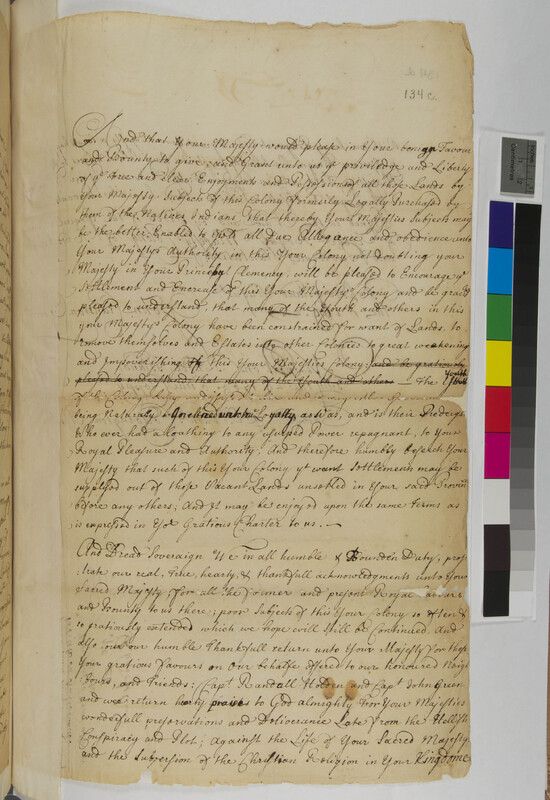 134 c.
And that Your Majesty would please in Your benign Favour
and Bounty to give and Grant unto us ye priviledge and Liberty
of ye free and Clear Enjoyments and Possessions of all those Lands by
Your Majestys Subjects of this Colony formerly Legally Purchased by
them of the Natives Indians That thereby Your Majesties Subjects may
be the better Enabled to Yeild all Due Allegance and obedience unto
Your Majestys Authority in this Your Colony not doubling your
Majesty in Your Princely Clemency, will be pleased to Encourage ye
Settlement and Encrease of this Your Majestys Colony and be gratiously
pleased to understand, that many of the Youth and others in this
your Majestys Colony have been constrained for want of Lands, to
remove themselves and Estates unto other Colonies to great weakening
and Impoverishing of this Your Majesties Colony and be gratiously
pleased to understand, that many of the Youth and others The Youth
of this Colony
being Naturaly Inclined unto Loyalty as was, and is their Predecess
Who ever had a loathing to any usurped Power repugnant, to Your
Royal Pleasure and Authority. And therefore humbly beseech Your
Majesty that such of this Your Colony yt want Settlements may be
supplyed out of those Vacant Lands unsetled in Your said Province
before any others; And yt may be enjoyed upon the same terms as
is expressed in Yor Gratious Charter to us.
And Dread Soveraign We in all humble & Bounden Duty, pros
trate our real, true, hearty, & thankfull acknowledgments unto Your
Sacred Majesty for all the former and present Royal favours
and bounty to us there; poor Subjects of this Your Colony so often &
so gratiously extended which we hope will still be Continued. And
also our humble Thankfull return unto Your Majesty for those
Your gratious favours on Our behalfe offered to our honoured Neigh
bours, and Friends: Capt. Randall Holden and Capt John Green
and we return harty praises to God almighty for Your Majesties
wonderfull preservations and Deliverance Late from the Hellish
Conspiracy and Plot; Against the Life of Your Sacred Majesty,
and the Subversion of the Christian Religion in Your Kingdome